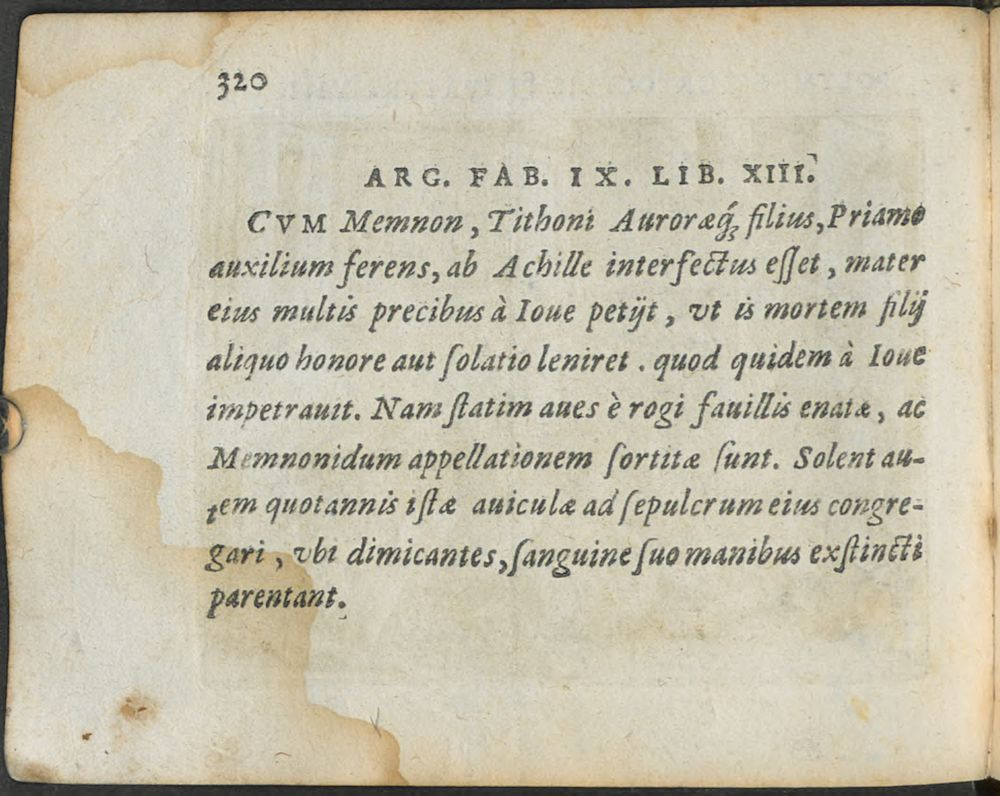 320
ARG. FAB. IX. LIB. XIII.
CVM Memnon, Tithoni Auroræq́ꝫ filius, Priamo
auxilium ferens, ab Achille interfectus eſſet, mater
eius multis precibus à Ioue petijt, vt is mortem filij
aliquo honore aut ſolatio leniret. quod quidem à Ioue
impetrauit. Nam ſtatim aues è rogi fauillis enatæ, ac
Memnonidum appellationem ſortitæ ſunt. Solent au-
tem quotannis iſtæ auiculæ ad ſepulcrum eius congre-
gari, vbi dimicantes, ſanguine ſuo manibus exſtincti
parentant.